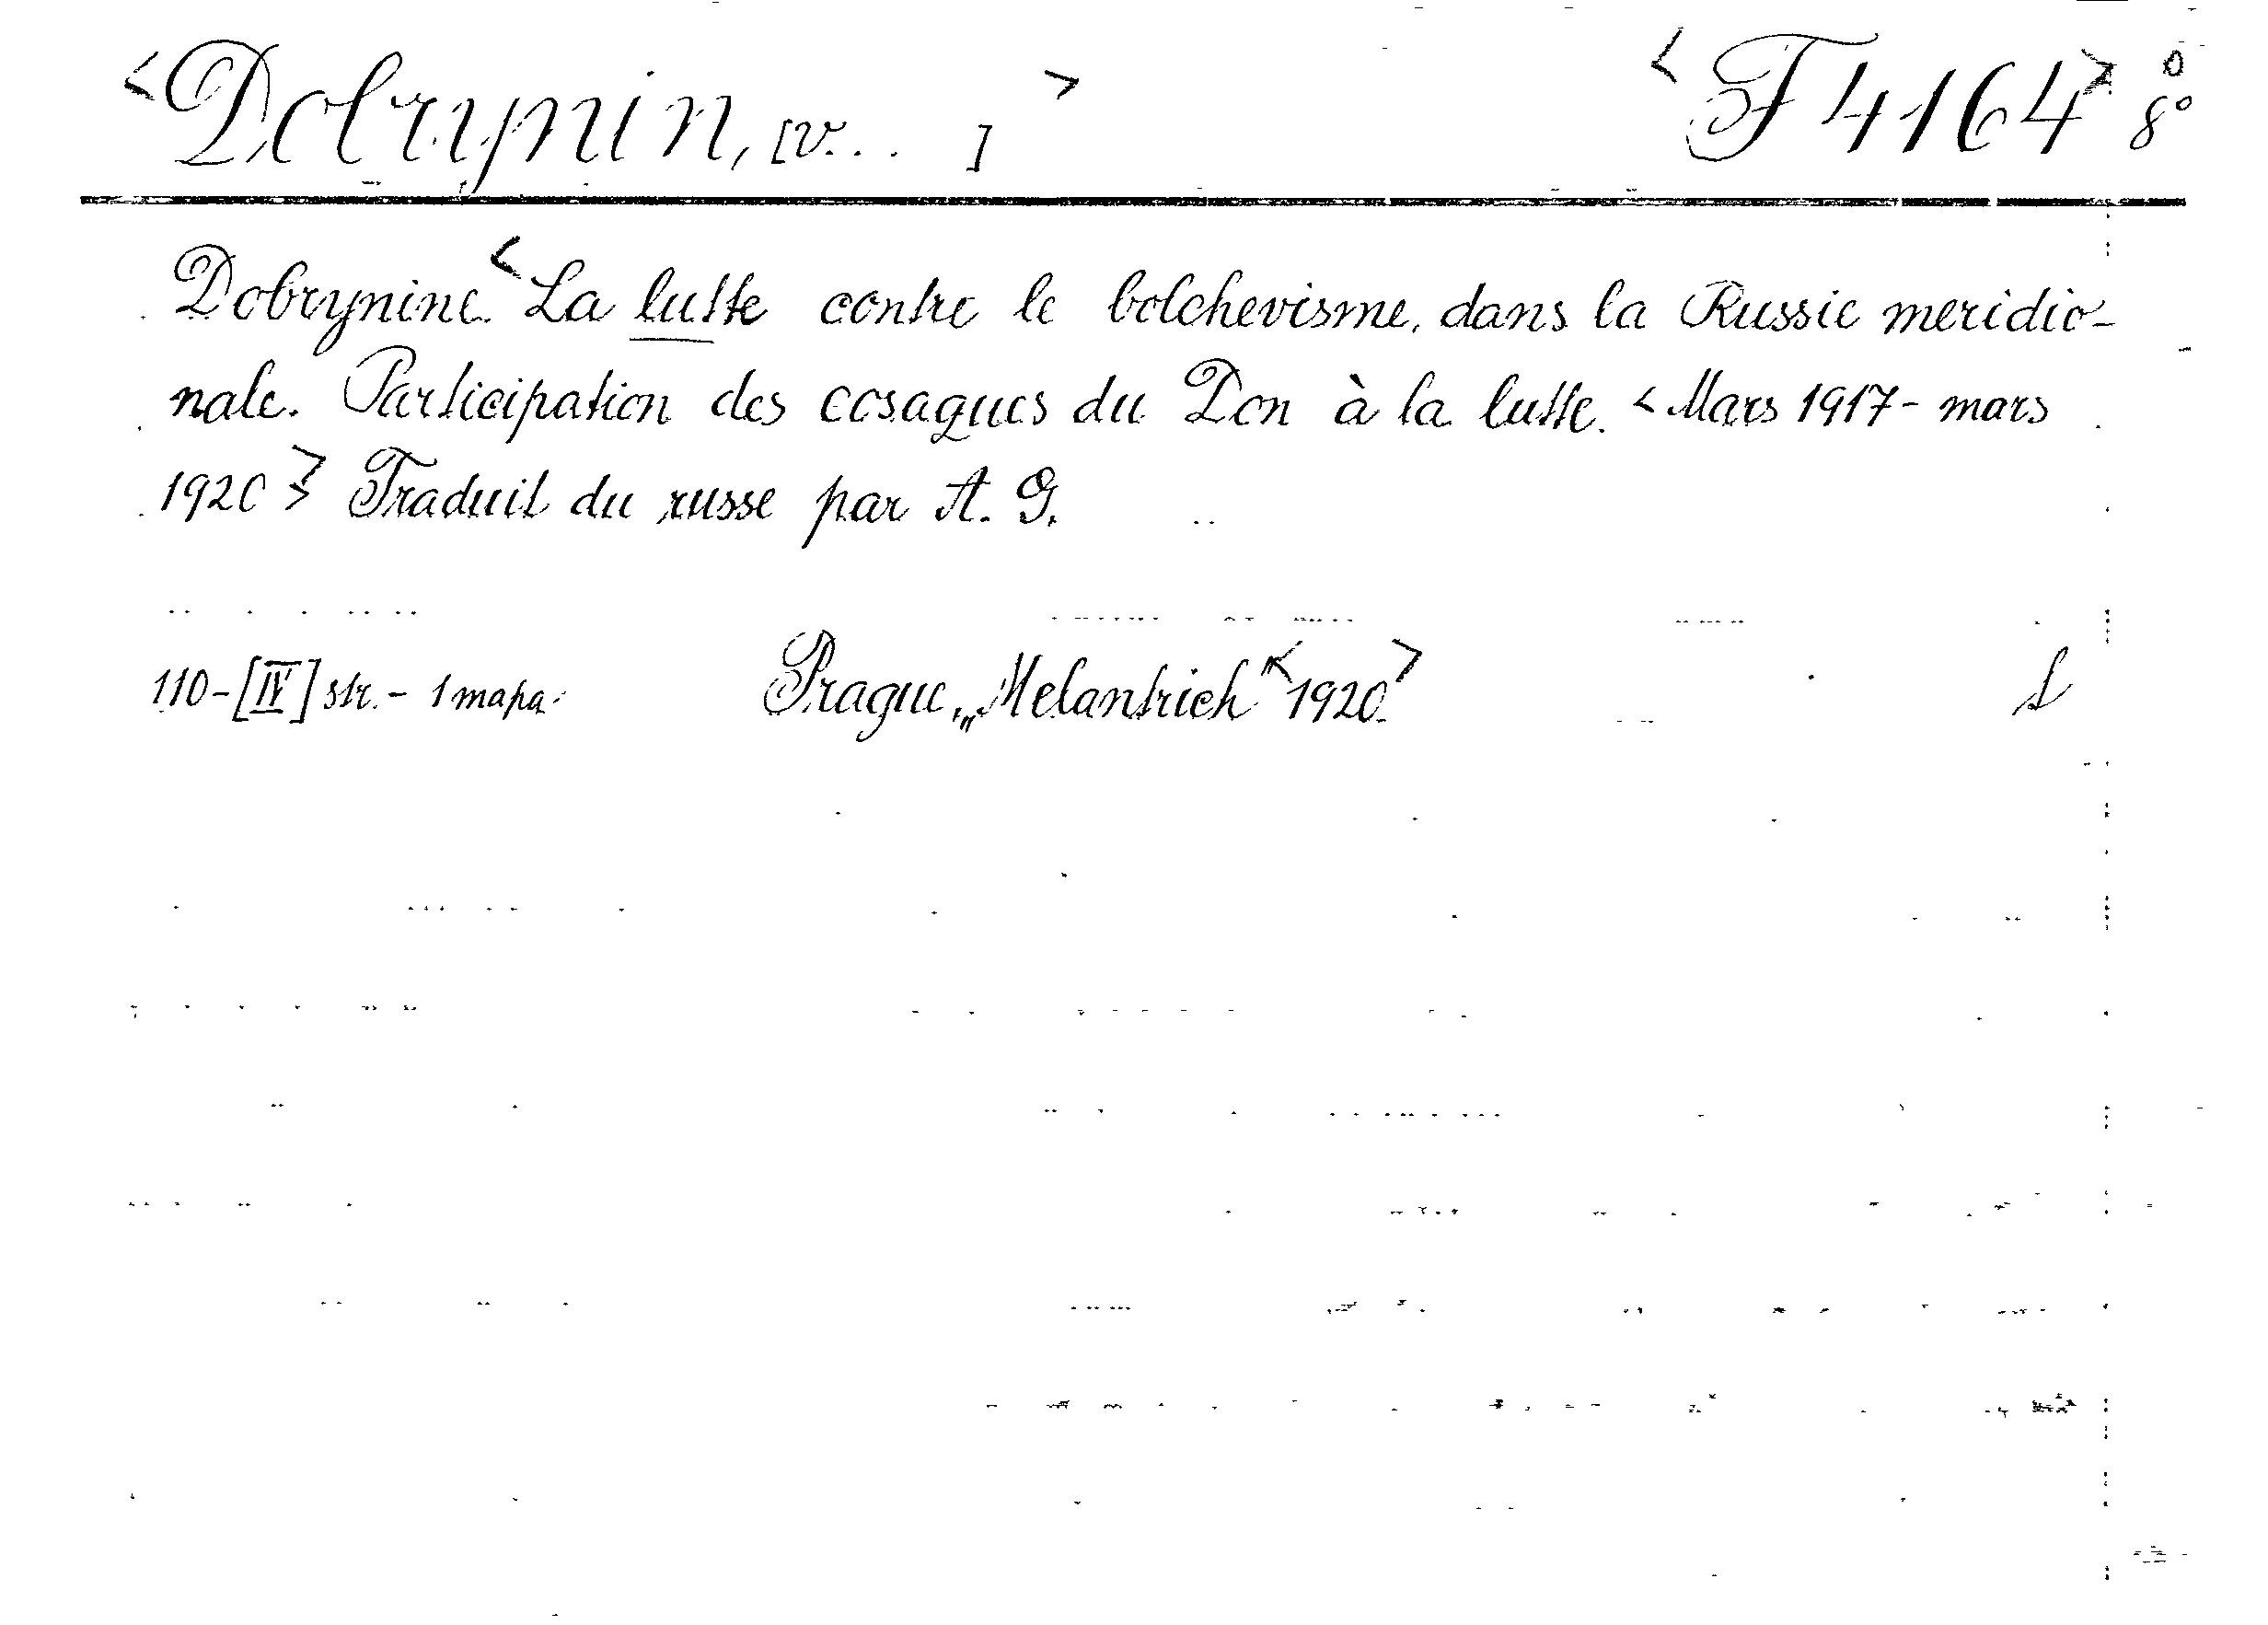 <Dobrynin, [V... ]> <F 4164> 8°
Dobrynine. <La lutte contre le bolchevisme, dans la Russie meridio-
nale. Participation des cosaques du Don à la lutte. <Mars 1917 - mars
1920>> Traduit du russe par A. G.
110-[IV] str. - 1 mapa. Prague, „Melantrich" <1920.>